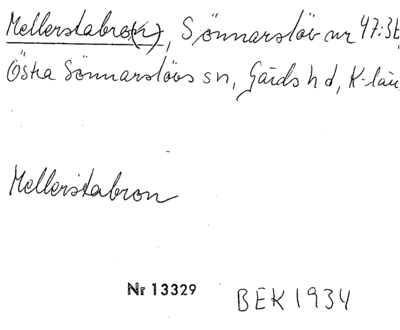 Mellerstabro(n), Sönnarslöv nr 47:36
Östra Sönnarslövs sn, Gärds hd, K-län
Mellerstabron
Nr 13329 BEK 1934